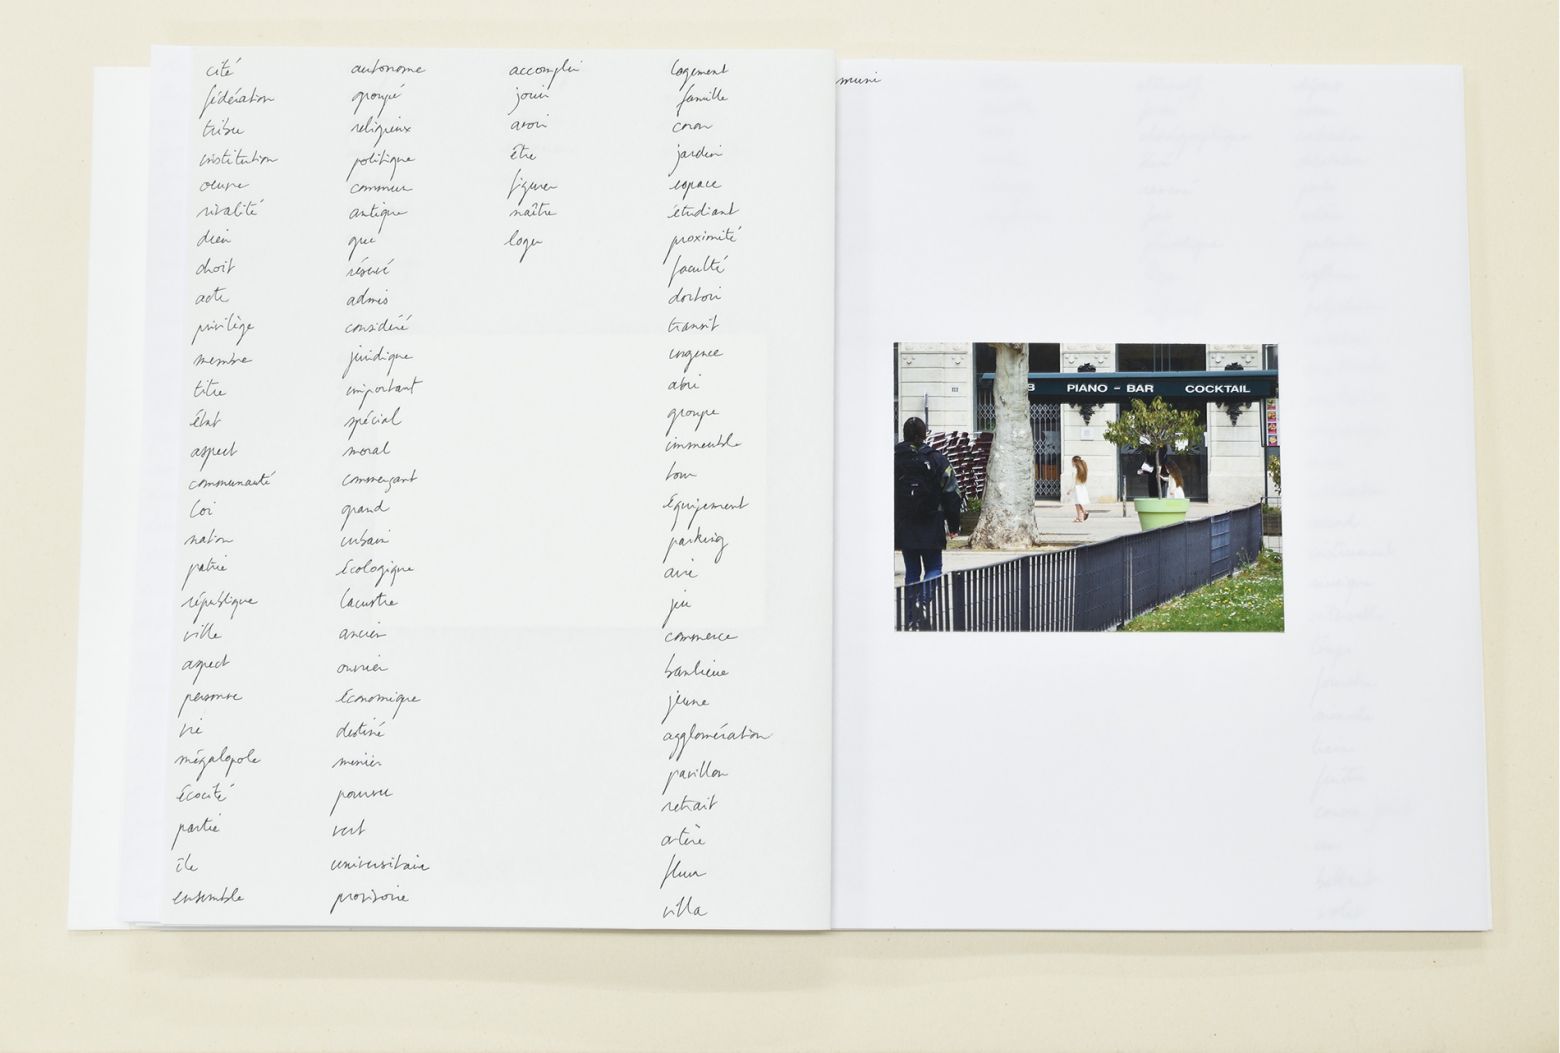 cité
fédération
tribu
institution
oeuvre
rivalité
dieu
droit
acte
privilège
membre
titre
État
aspect
communauté
loi
nation
patrie
république
ville
aspect
personne
vie
mégalopole
écocité
partie
île
ensemble
autonome
groupé
religieux
politique
commun
antique
grec
réservé
admis
considéré
juridique
important
spécial
moral
commerçant
grand
urbain
écologique
lacustre
ancien
ouvrier
économique
destiné
menier
pourvu
vert
universitaire
provisoire
accomplir
jouir
avoir
être
figurer
naître
loger
logement
famille
coron
jardin
espace
étudiant
proximité
faculté
dortoir
transit
urgence
abri
groupe
immeuble
tour
équipement
parking
aire
jeu
commerce
banlieue
jeune
agglomération
pavillon
retrait
artère
fleur
villa
muni
PIANO - BAR COCKTAIL